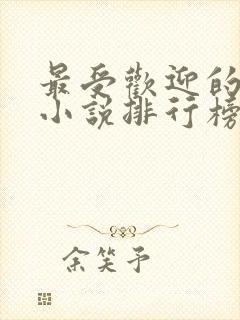 最受歡迎的
小說排行榜
余笑予